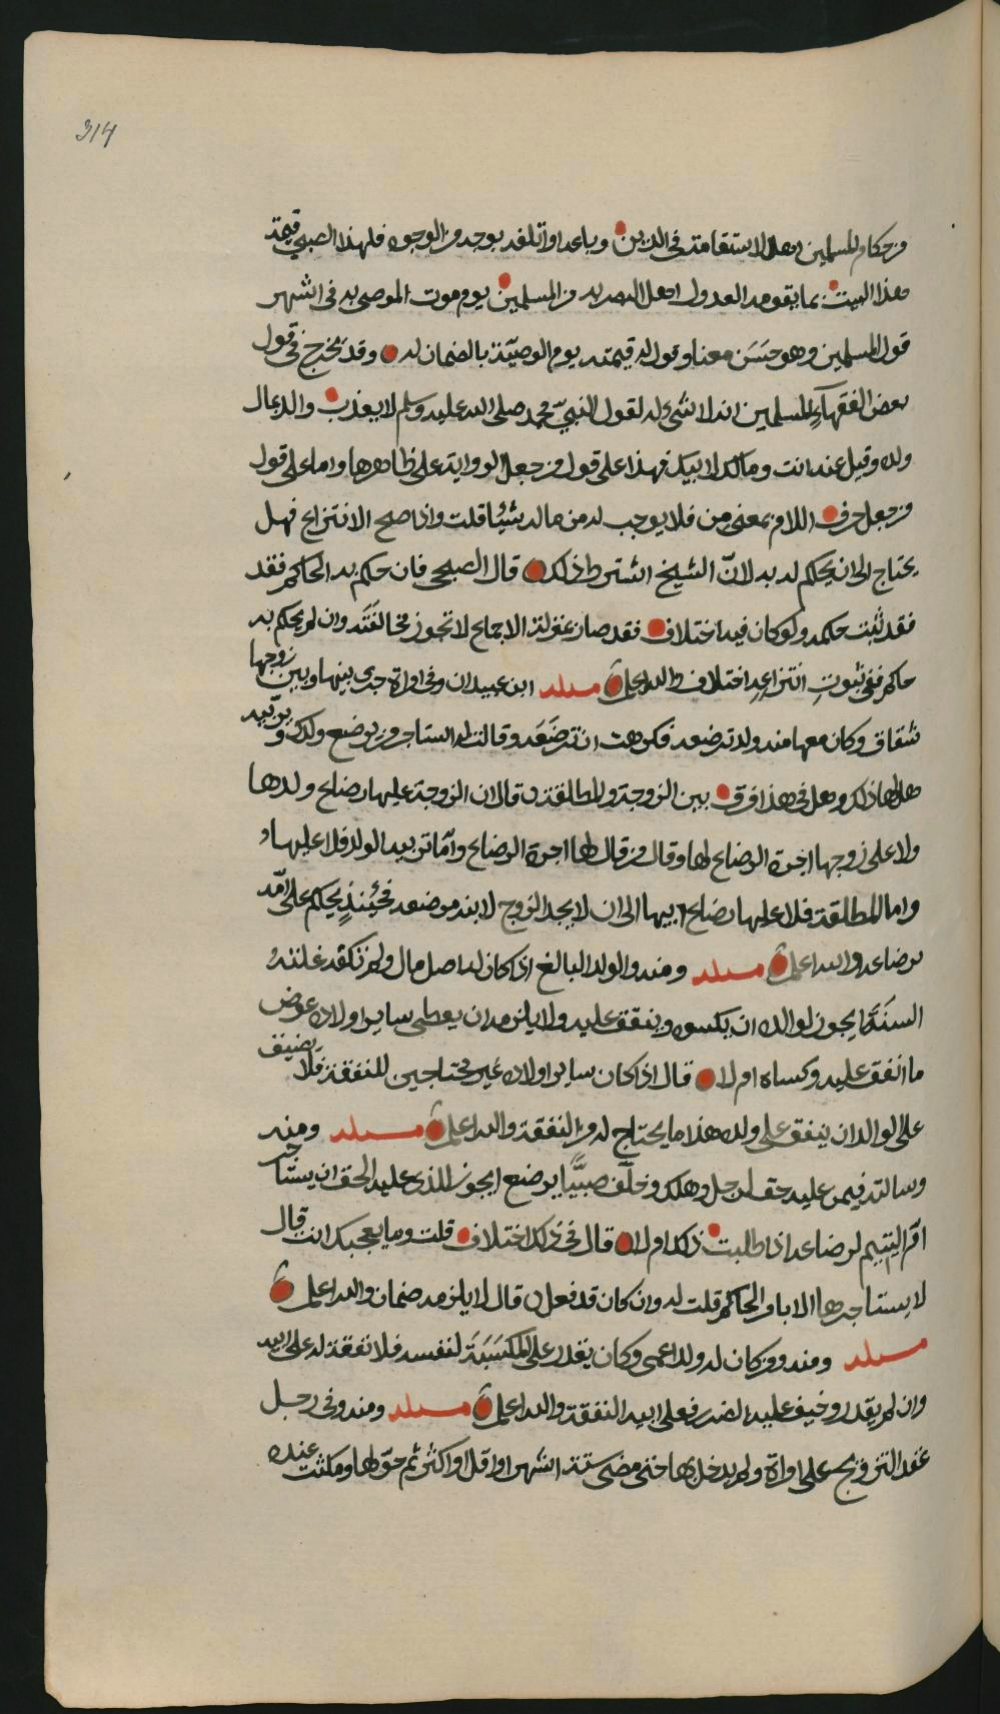 314
من حكام المسلمين اهل الاستقامة في الدين وباعه او اتلفه بوجه من الوجوه فلهذا الصبي قيمة
هذا البيت بما يقومه العدول اهل البصر به من المسلمين يوم موت الموصي به في اشهر
قول المسلمين وهو حسن معنا وقول له قيمته يوم الوصيّة بالضمان له وقد يخرج في قول
بعض الفقهآء المسلمين انه لا شيء له لقول النبيّ محمد صلى الله عليه وسلم لا يعذب والد بمال
ولده وقيل عنه انت ومالك لابيك فهذا على قول من جعل الرواية على ظاهرها واما على قول
من جعل حرف اللام بمعنى من فلا يوجب له من ماله شيئا قلت واذا صح الانتزاع فهل
يحتاج الى ان يحكم له به لانّ الشيخ اشترط ذلك قال الصبحي فان حكم به الحاكم فقد
فقد ثبت حكمه ولو كان فيه اختلاف فقد صار بمنزلة الاجماع لا تجوز مخالفته وان لم يحكم به
حاكم ففي ثبوت انتزاعه اختلاف والله اعلم مسئلة ابن عبيدان وفي امراة جرى بينها وبين زوجها
شقاق وكان معها منه ولد ترضعه فكرهت ان ترضعه وقالت له استاجر من يرضع ولدك ويربيه
هل لها ذلك وهل في هذا فرق بين الزوجة والمطلقة قال ان الزوجة عليها رضاع ولدها
ولا على زوجها اجرة الرضاع لها وقال من قال لها اجرة الرضاع وامّا تربية الولد فلا عليها
واما المطلقة فلا عليها رضاع ابيها الى ان لا يجد الزوج لابنه مرضعة فحينئذ يحكم على امّه
برضاعه والله اعلم مسئلة ومنه والولد البالغ اذا كان له اصل مال ولم تكفه غلته
السنة ايجوز لوالده ان يكسوه وينفق عليه ولا يلزمه ان يعطي ساير اولاده عوض
ما انفق عليه وكساه ام لا قال اذا كان ساير اولاده غير محتاجين للنفقة فلا يضيق
على الوالد ان ينفق على ولده هذا ما يحتاج له من النفقة والله اعلم مسئلة ومنه
وسالته فيمن عليه حق لرجل وهلك وخلّف صبيّا يرضع ايجوز للذي عليه الحق ان يستاجر
امّ اليتيم لرضاعه اذا طلبت ذلك ام لا قال في ذلك اختلاف قلت وما يعجبك انت قال
لا يستاجرها الا بامر الحاكم قلت له وان كان قد فعل قال لا يلزمه ضمان والله اعلم
مسئلة ومنه ومن كان له ولد اعمى وكان يقدر على المكسبة لنفسه فلا نفقة له على ابيه
وان لم يقدر وخيف عليه الضرر فعلى ابيه النفقة والله اعلم مسئلة ومنه وفي رجل
عقد التزويج على امراة ولم يدخل بها حتى مضى ستة اشهر او اقل او اكثر ثم حوّلها ومكثت عنده